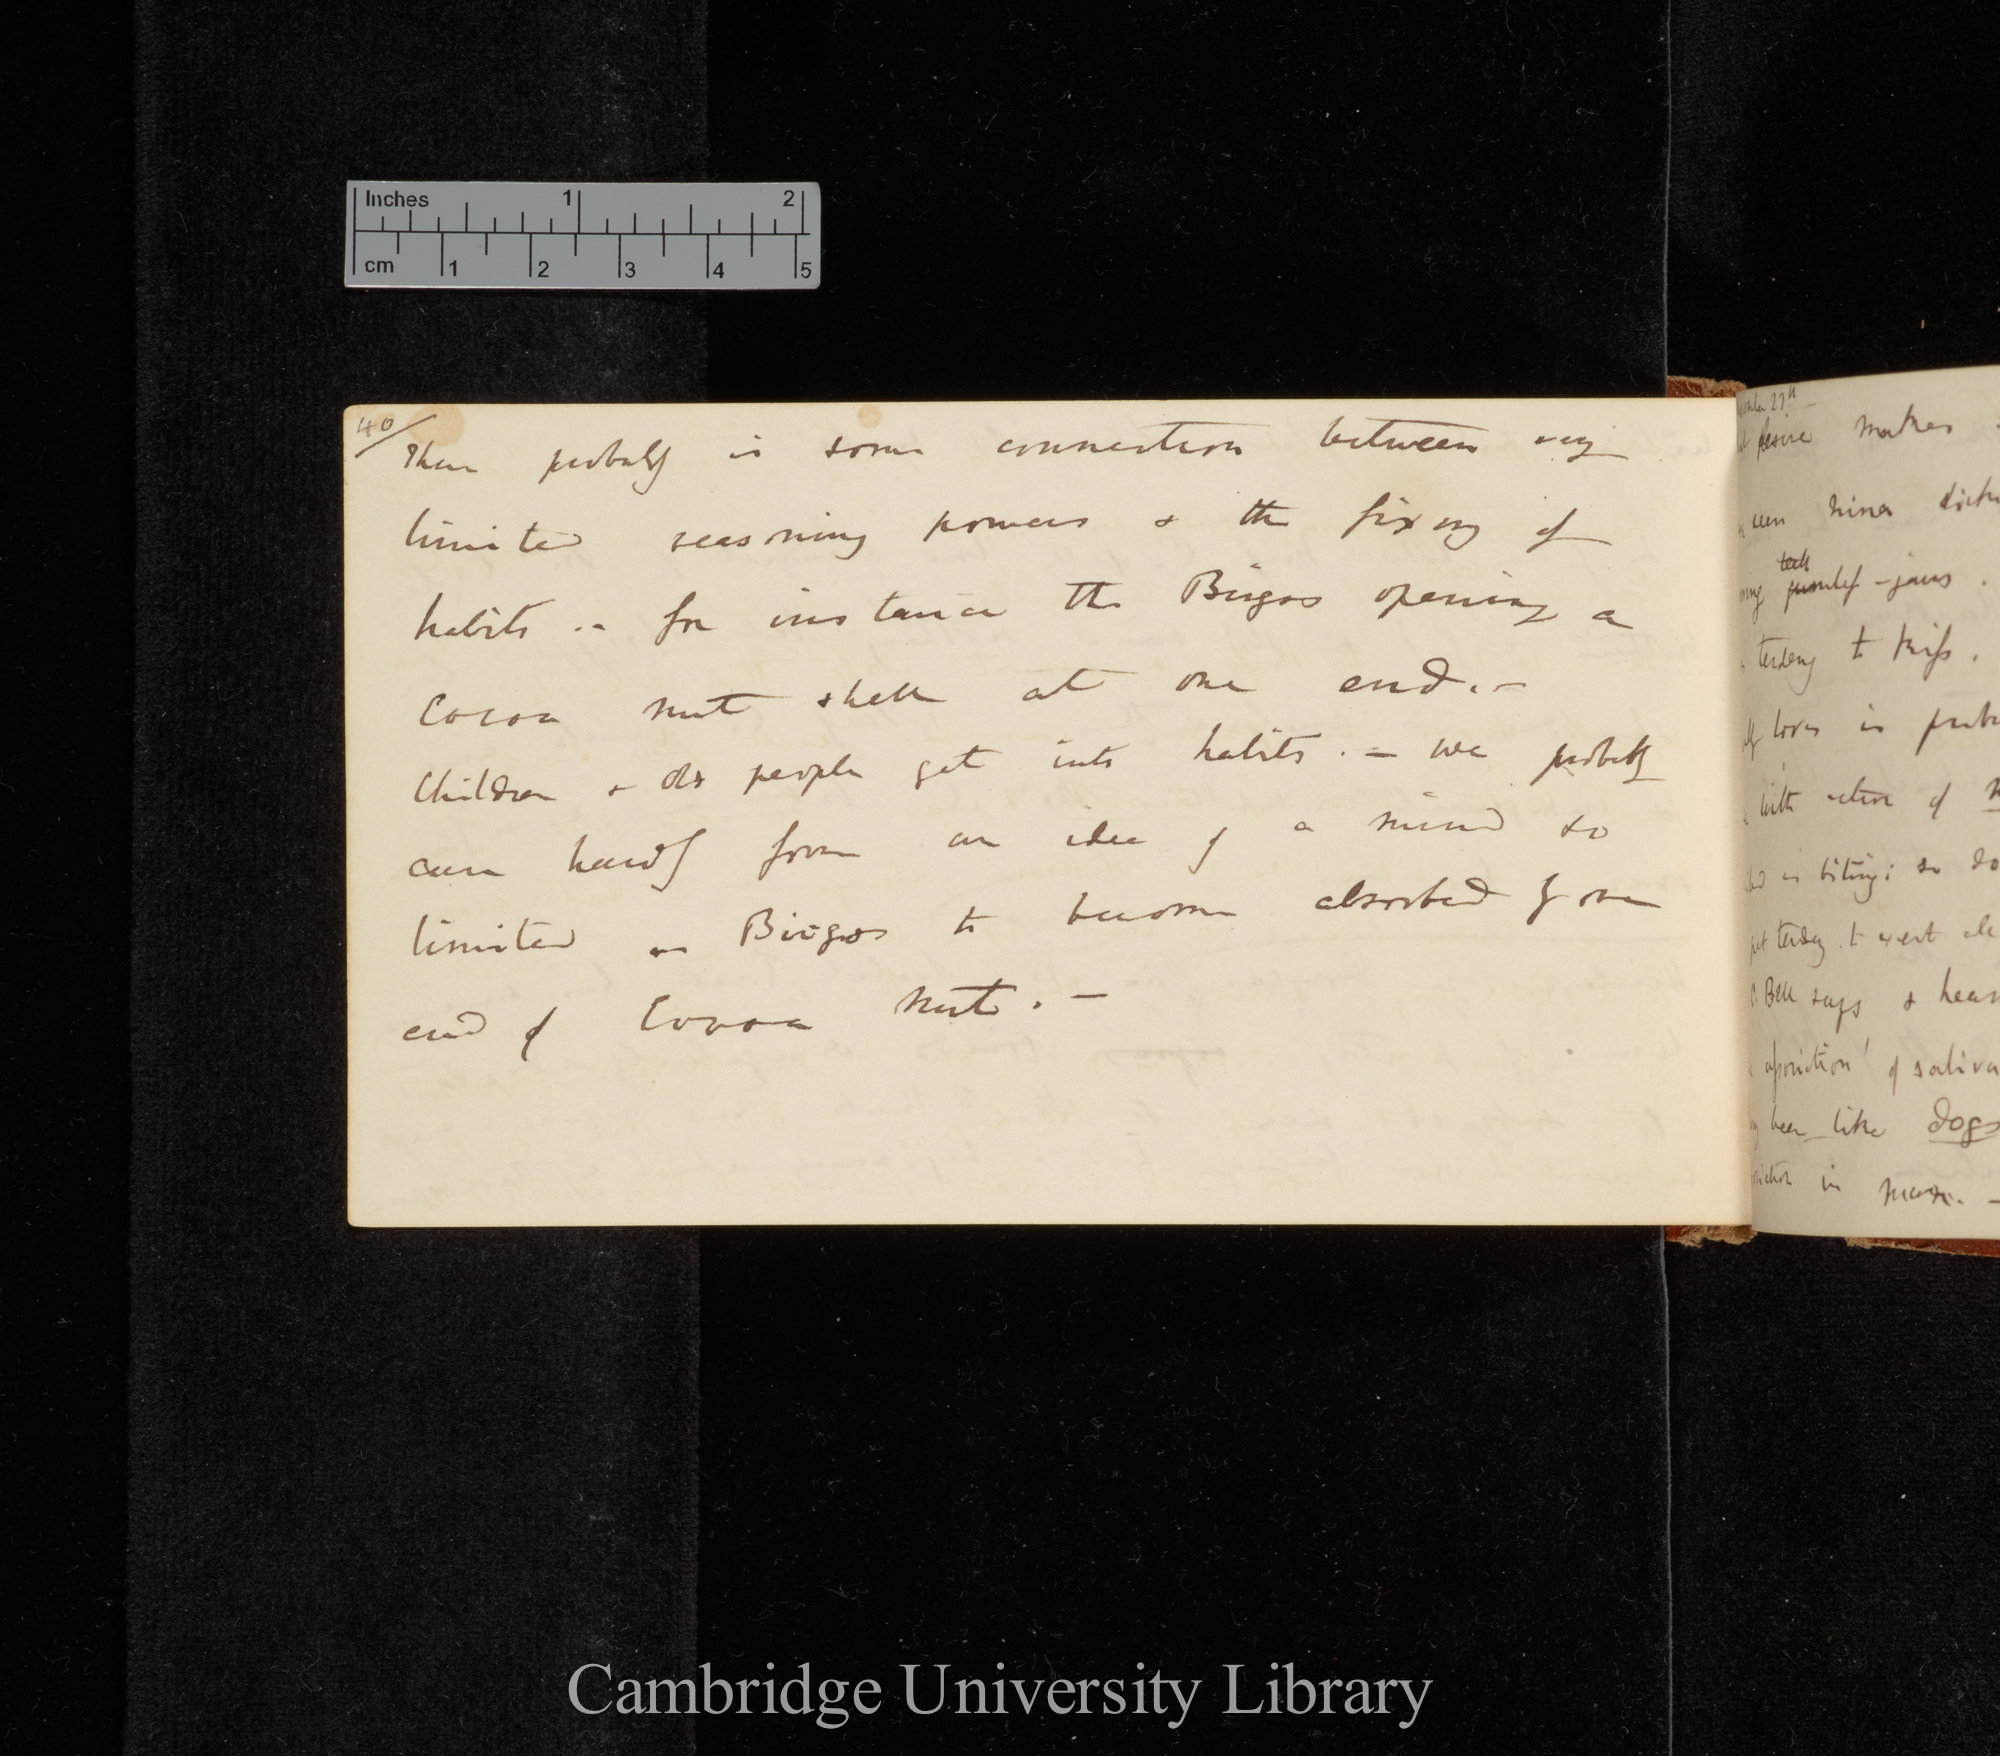 Inches 1 2
cm 1 2 3 4 5
40/
There probably is some connection between very
limited reasoning powers & the fixing of
habits .- for instance the Birgos opening a
Cocoa nut shell at one end.—
Children & old people get into habits.— we probably
can hardly form an idea of a mind so
limited as Birgos to become absorbed by one
end of Cocoa nut.—
27th
desire makes
seen
teeth
-jaws.
tendency to kiss.
loves is
with action of
biting: so do
tendency to exert
Bell says & hear
of saliva
been like dogs
in man.—
Cambridge University Library